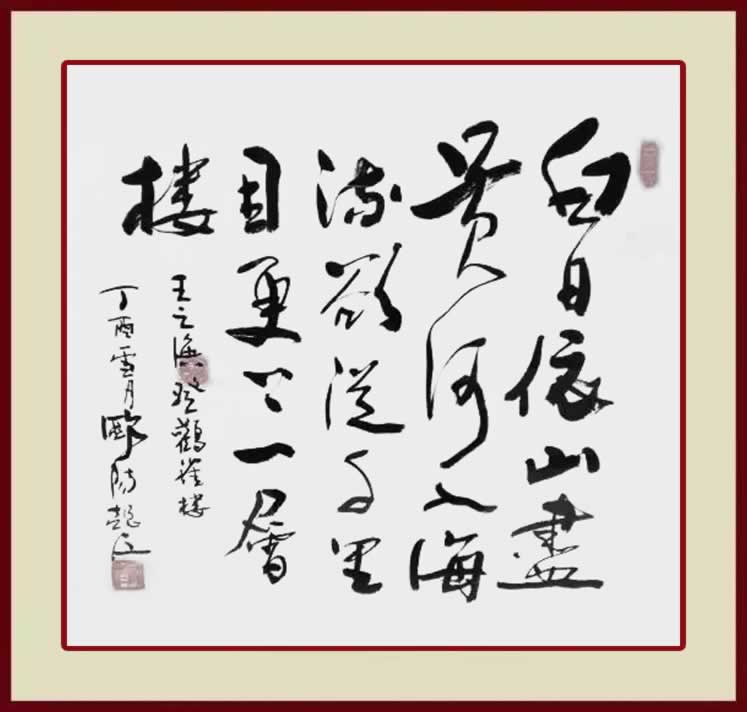 白日依山盡
黄河入海
流欲窮千里
目更上一層
樓
王之渙登鸛雀樓
丁酉雪月歐陽